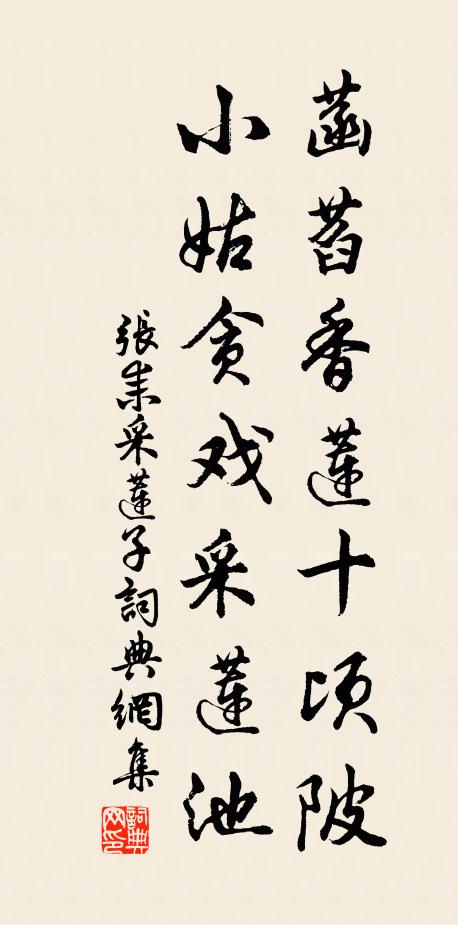 菡萏香蓮十顷陂
小姑贪戏采蓮池
張耒采蓮子詞典網集
詞典网印